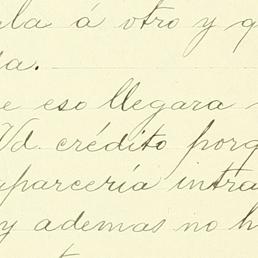 la á otro y q
da.
e eso llegara
Vd. crédito porq
aparcería intra
y ademas no h